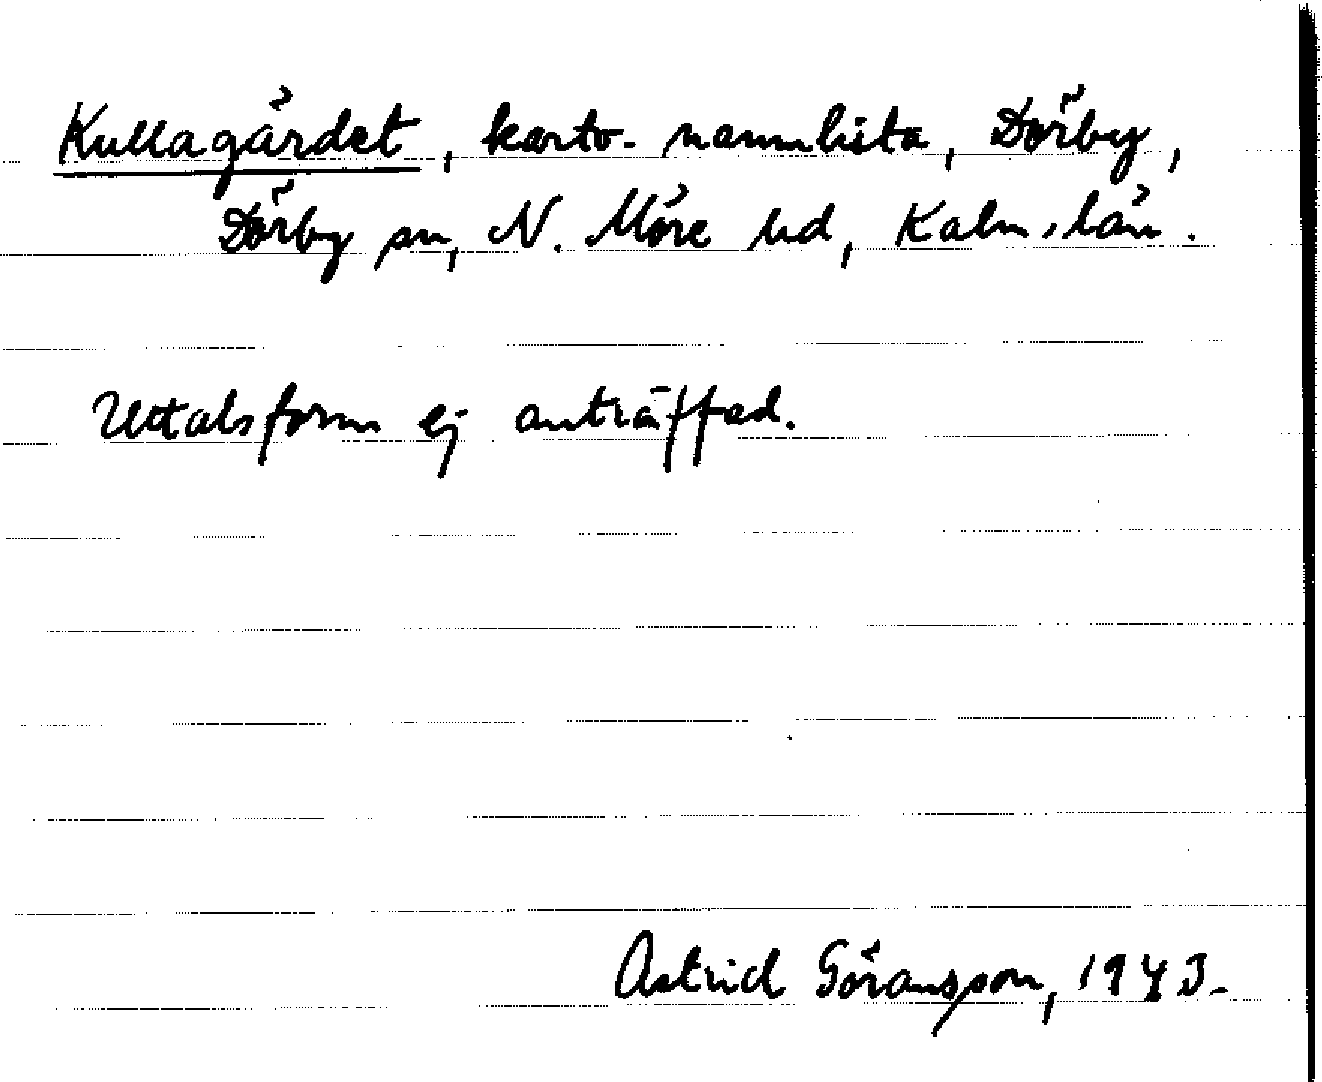 Kullagärdet, karto- namnlista, Dörby,
Dörby sn, N. Möre hd, Kalm. län.
Uttalsform ej anträffad.
Astrid Göransson, 1943.